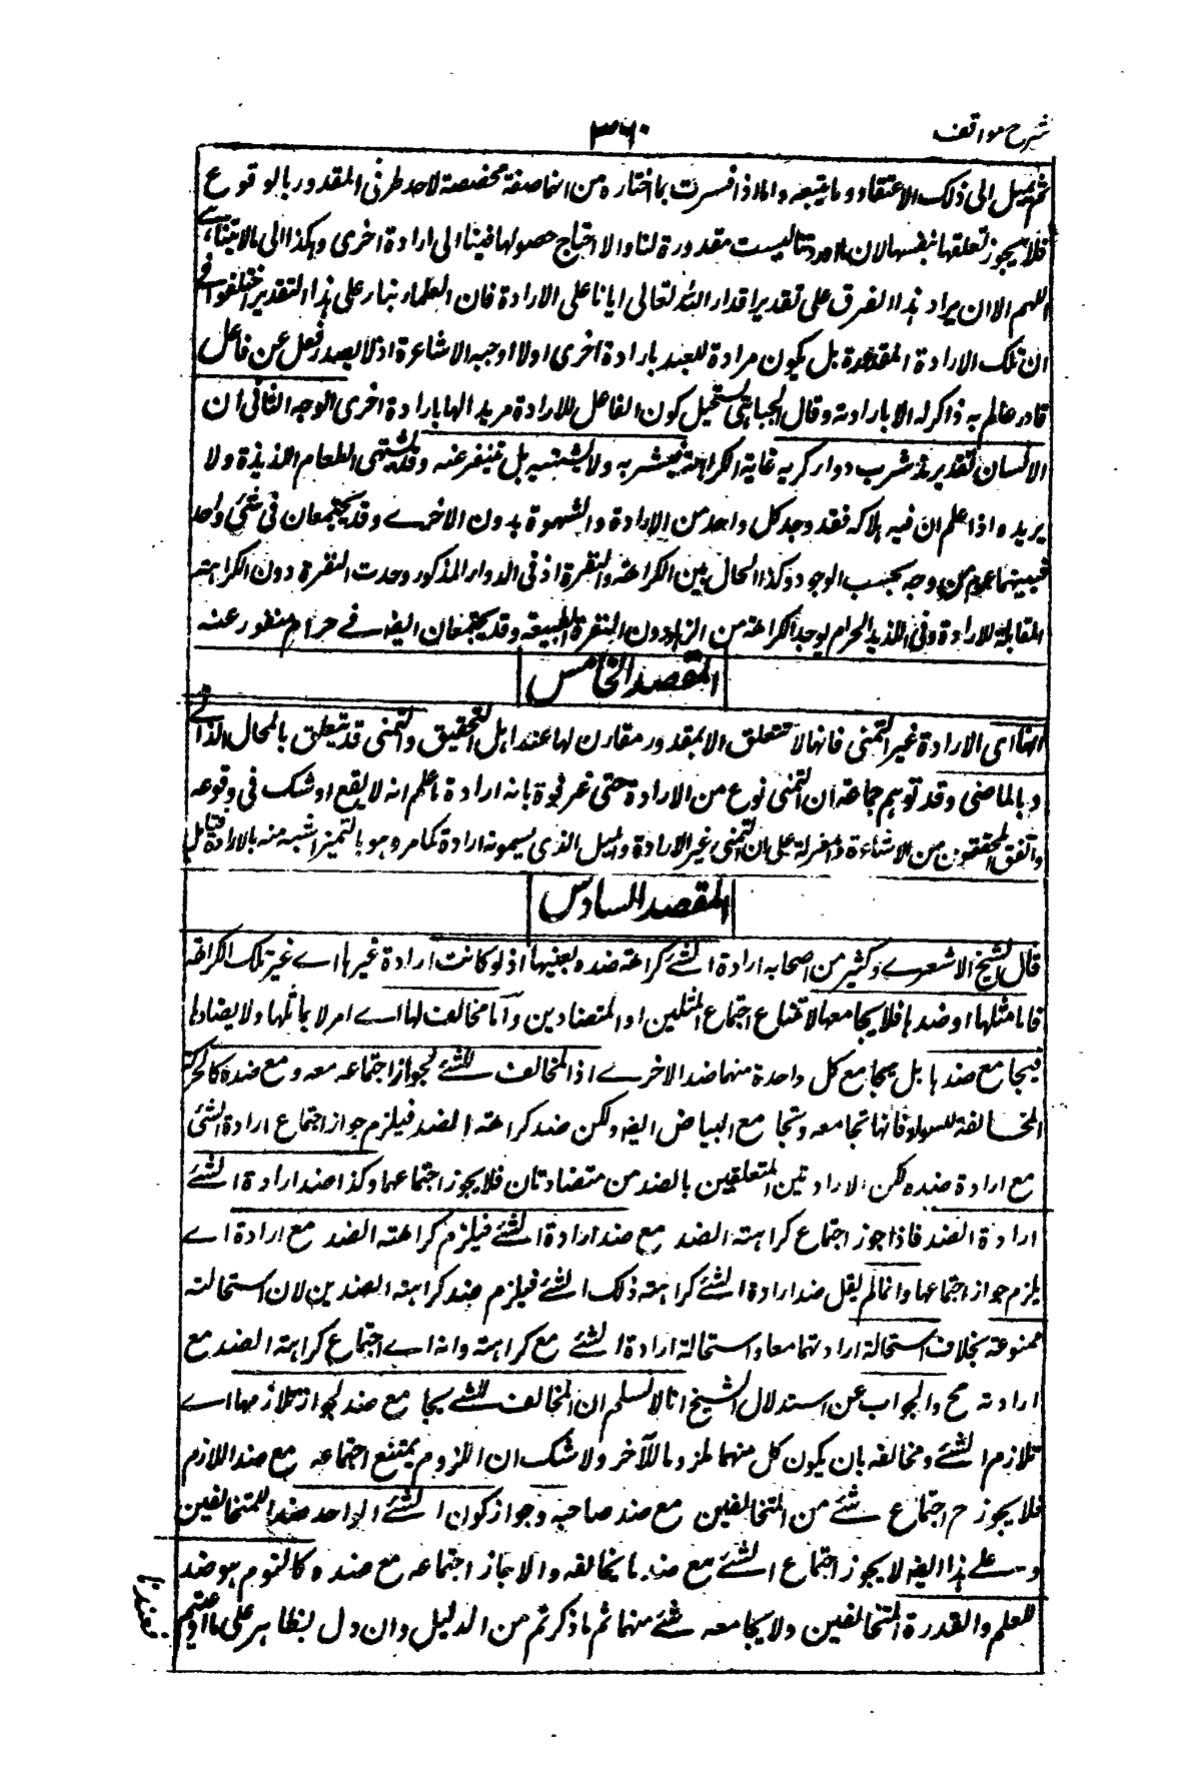 شرح مواقف
۳۶۰
ثم يميل الى ذلك الاعتقاد وما يتبعه واما اذا فسرت بما اختاره من انها صفة مخصصة لاحد طرفى المقدور بالوقوع
فلا يجوز تعلقها بنفسها لان ارادتنا ليست مقدورة لنا والا احتاج حصولها فينا الى ارادة اخرى وهكذا الى ما لا يتناهى
اللهم الا ان يراد هذا الفرق على تقدير اقدار الله تعالى ايانا على الارادة فان العلماء بناء على هذا التقدير اختلفوا فى
ان تلك الارادة المقدورة بل يكون مرادة للعبد بارادة اخرى اولا اوجبه الاشاعرة اذ لا يصدر فعل عن فاعل
قادر عالم به ذاكر له الا بارادته وقال الجبائى يستحيل كون الفاعل للارادة مريدا لها بارادة اخرى الوجه الثانى ان
الانسان قد يريد شرب دواء كريه غاية الكراهة فيشربه ولا يشتهيه بل يتنفر عنه وقد يشتهى الطعام اللذيذة ولا
يريده اذا علم ان فيه هلاكه فقد وجد كل واحد من الارادة والشهوة بدون الاخرے وقد يجتمعان فى شئ واحد
فبينهما عموم من وجه بحسب الوجود وكذا الحال بين الكراهة والنفرة اذ فى الدواء المذكور وجدت النفرة دون الكراهة
المقابلة للارادة وفى اللذيذ الحرام يوجد الكراهة من الزهاد دون النفرة الطبيعة وقد يجتمعان ايضا فے حرام منفور عنه
المقصد الخامس
انها اى الارادة غير التمنى فانها لا تتعلق الا بمقدور مقارن لها عند اهل التحقيق والتمنى قد يتعلق بالمحال الذاتے
وبالماضى وقد توهم جماعة ان التمنى نوع من الارادة حتى عرفوة بانه ارادة ما علم انه لا يقع او شك فى وقوعه
واتفق المحققون من الاشاعرة والمعتزلة على ان التمنى غير الارادة والميل الذى يسمونه ارادة كما مر وهو بالتميز اشبه منه بالارادة فتامل
المقصد السادس
قال الشيخ الاشعرے وكثير من اصحابه ارادة الشئے كراهة ضده بعينها اذ لو كانت ارادة غيرها اے غير تلك الكراهة
فاما مثلها او ضدها فلا يجامعها لامتناع اجتماع المثلين او المتضادين وأما مخالف لها اے امر لا يماثلها ولا يضادها
فيجامع ضدها بل يجامع كل واحدة منهما ضد الاخرے اذ المخالف للشئے يجوز اجتماعه معه ومع ضده كالحركة
المخالفة للسواد فانها تجامعه وتجامع البياض ايضا ولكن ضد كراهة الضد فيلزم جواز اجتماع ارادة الشئ
مع ارادة ضده لكن الارادتين المتعلقين بالضدين متضادتان فلا يجوز اجتماعهما وكذا ضد ارادة الشئے
ارادة الضد فاذا جوز اجتماع كراهة الضد مع ضد ارادة الشئے فيلزم كراهة الضد مع ارادة اے
يلزم جواز اجتماعها وانما لم يقل ضد ارادة الشئے كراهة ذلك الشئے فيلزم ضد كراهة الضدين لان استحالته
ممنوعة بخلاف استحالة ارادتهما معا واستحالة ارادة الشئے مع كراهة وانه اے اجتماع كراهة الضد مع
ارادته مح والجواب عن استدلال الشيخ انا لا نسلم ان المخالف للشئے يجامع ضده لجواز تلازمهما اے
تلازم الشئے ومخالفه بان يكون كل منهما ملزوما للآخر ولا شك ان الملزوم يمتنع اجتماعه مع ضد اللازم
فلا يجوز ح اجتماع شئے من المتخالفين مع ضد صاحبه وجواز كون الشئے الواحد ضدا للمتخالفين
وعلے هذا ايضا لا يجوز اجتماع الشئے مع ضد ما يخالفه والا جاز اجتماعه مع ضده كالنوم هو ضد
للعلم والقدرة المتخالفين ولا يجامعه شئے منهما ثم ما ذكرتم من الدليل وان دل بظاهره على ما ادعيتم
فعندنا